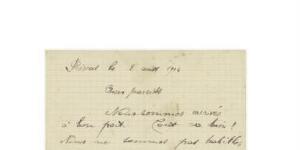 le 8 août 1914
Chers parents
Nous sommes arrivés
à bon port. Tout va bien !
Nous ne sommes pas habillés